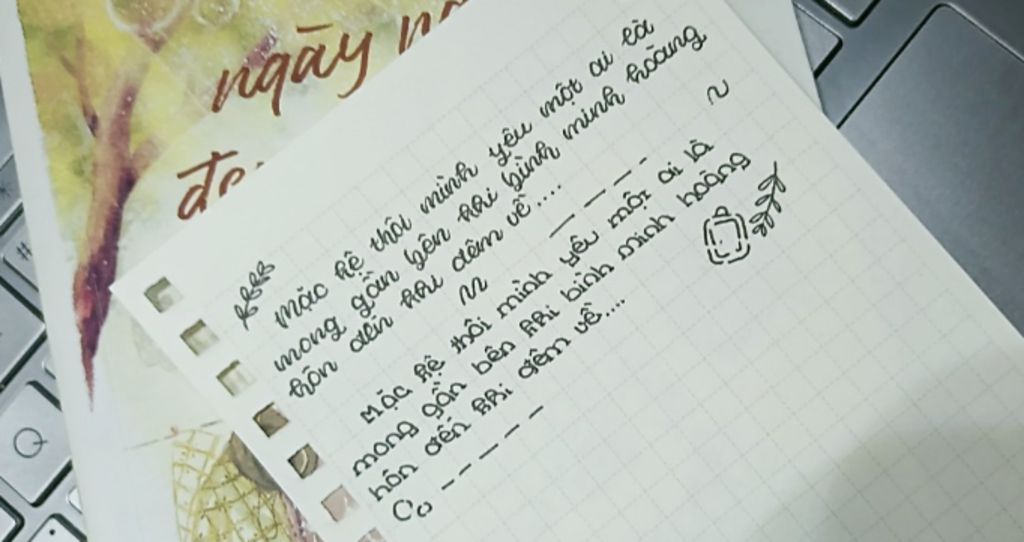 ngày
mặc kệ thôi mình yêu một ai là
mong gần bên khi bình minh hoàng
hôn đến khi đêm về....
mặc kệ thôi mình yêu một ai là
mong gần bên khi bình minh hoàng
hôn đến khi đêm về....
Q